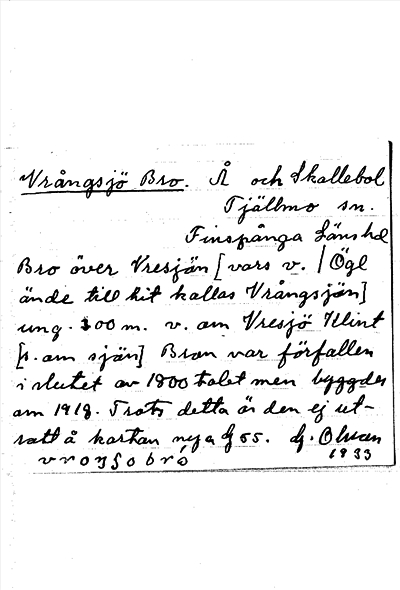 Vrångsjö Bro. Å och Skallebol
Tjällmo sn.
Finspånga Länshd
Bro över Vresjön [vars v. / Ögl
ände till hit kallas Vrångsjön]
ung. 300 m. v. om Vresjö Klint
[s. om sjön] Bron var förfallen
i slutet av 1800 talet men byggdes
om 1918. Trots detta är den ej ut-
satt å kartan nya G 55. G. Olson
1933